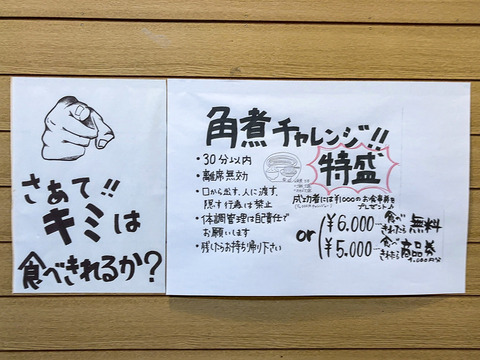 さあて!!
キミは
食べきれるか?
角煮チャレンジ!!
特盛
・30分以内
・離席無効
・口から出す、人に渡す、
隠す行為は禁止
・体調管理は自責任で
お願いします
・残したらお持ち帰り下さい
成功者には¥1000のお食事券を
プレゼント
or
¥6.000 食べきれたら 無料
¥5.000 食べきれたら 商品券
1.000円分